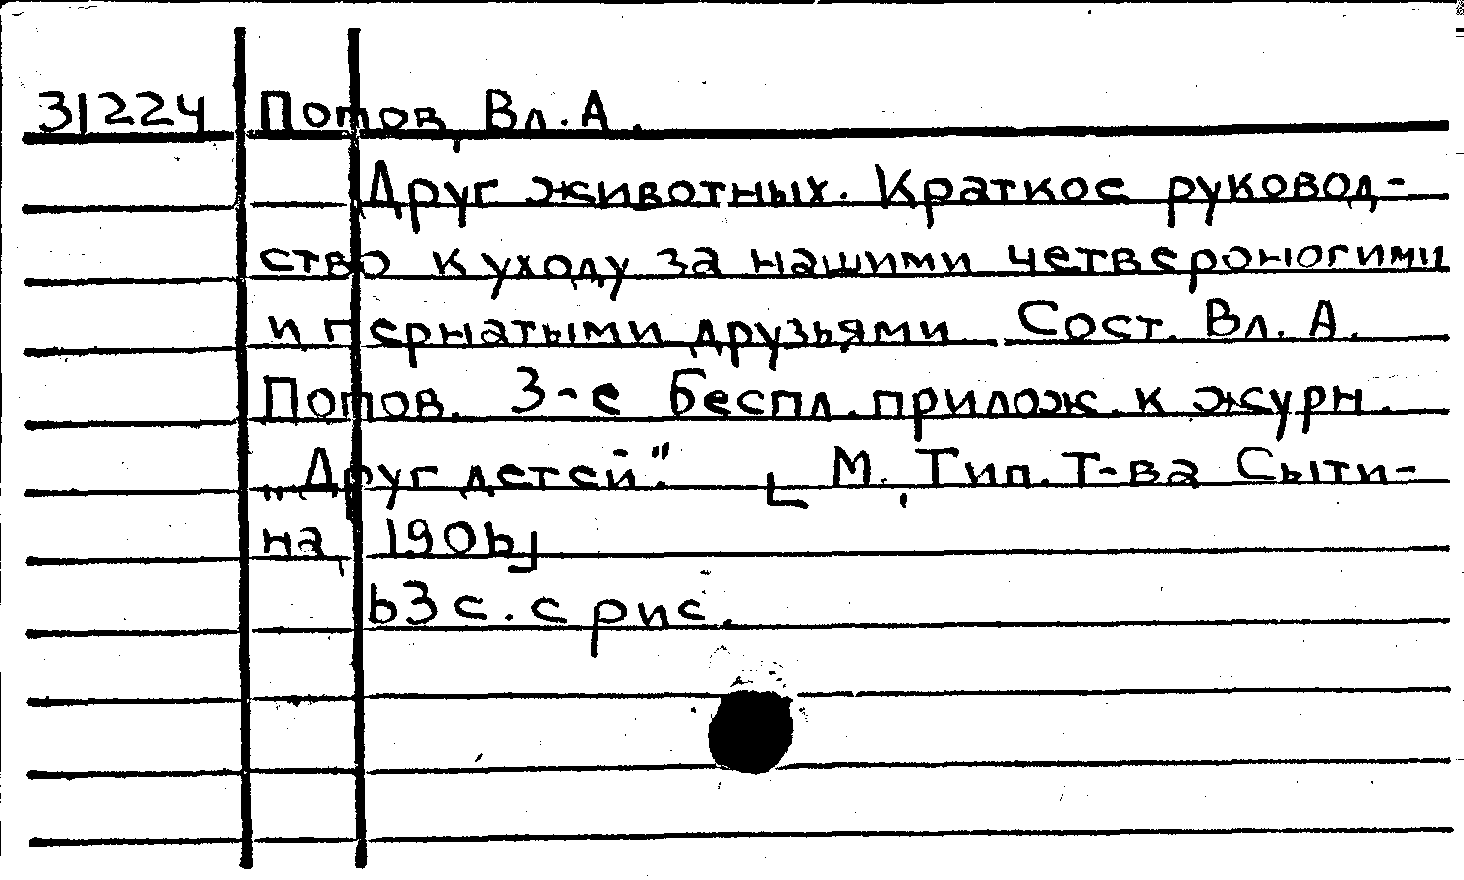 31224 Попов, Вл. А.
Друг животных. Краткое руковод-
ство к уходу за нашими четвероногими
и пернатыми друзьями. Сост. Вл. А.
Попов. 3-е беспл. прилож. к журн.
„Друг детей". [М., Тип. Т-ва Сыти-
на, 1906]
63 с. с рис.